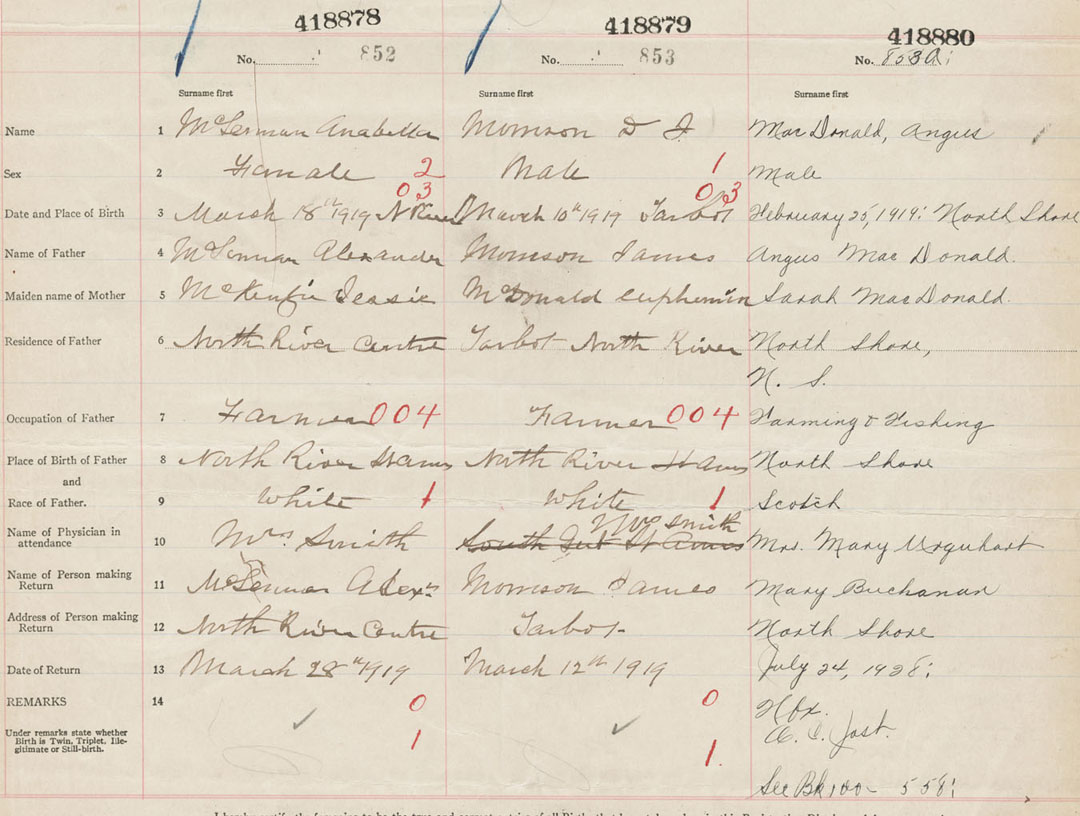 418878 418879 418880
No. 852 No. 853 No. 853a:
Surname first Surname first Surname first
Name 1 Anabella Morrison D J MacDonald, Angus
Sex 2 Female 2 Male 1 Male
03 03
Date and Place of Birth 3 March 18th 1919 N River March 10th 1919 Tarbot February 25, 1919: North Shore
Name of Father 4 Alexander Morrison James Angus MacDonald.
Maiden name of Mother 5 McKenzie Jessie McDonald Euphemia Sarah MacDonald.
Residence of Father 6 North River Centre Tarbot North River North Shore,
N. S.
Occupation of Father 7 Farmer 004 Farmer 004 Farming & Fishing
Place of Birth of Father 8 North River St Anns North River St Anns North Shore
and
Race of Father. 9 White 1 White 1 Scotch
Mrs Smith
Name of Physician in attendance 10 Mrs. Smith South Gut St Anns Mrs. Mary Urquhart
Name of Person making Return 11 Morrison James Mary Buchanan
Address of Person making Return 12 North River Centre Tarbot North Shore
Date of Return 13 March 28th 1919 March 12th 1919 July 24, 1928:
REMARKS 14 0 0 Hfx.
Under remarks state whether Birth is Twin, Triplet, Ille-gitimate or Still-birth. 1 1. Jost.
See Bk 100- 558: